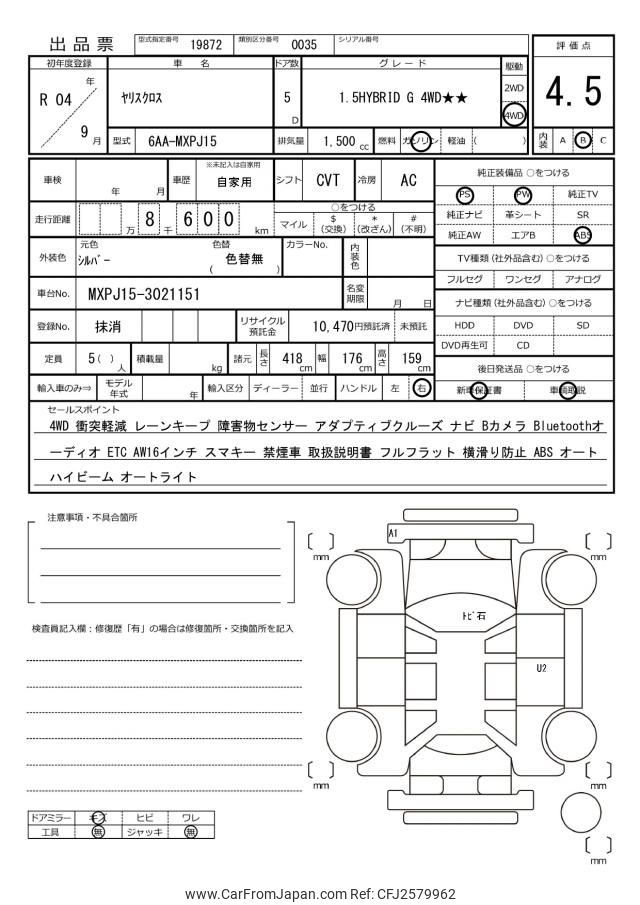 出品票 型式指定番号 19872 類別区分番号 0035 シリアル番号
評価点
4.5
初年度登録 車名 ドア数 グレード 駆動
R 04 年 9 月 ヤリスクロス 5 D 1.5HYBRID G 4WD★★ 2WD 4WD
型式 6AA-MXPJ15 排気量 1,500 cc 燃料 ガソリン 軽油 ( )
内装 A B C
車検 年 月 車歴 ※未記入は自家用 自家用 シフト CVT 冷房 AC
走行距離 万 8 千 6 0 0 km
○をつける
マイル $ (交換) * (改ざん) # (不明)
外装色 元色 シルバー 色替 ( 色替無 ) カラーNo. 内装色
車台No. MXPJ15-3021151 名変期限 月 日
登録No. 抹消 リサイクル預託金 10,470円預託済 未預託
定員 5 ( ) 人 積載量 kg 諸元 長さ 418 cm 幅 176 cm 高さ 159 cm
輸入車のみ⇒ モデル年式 年 輸入区分 ディーラー ・ 並行 ハンドル 左 ・ 右
純正装備品 ○をつける
PS PW 純正TV
純正ナビ 革シート SR
純正AW エアB ABS
TV種類 (社外品含む) ○つける
フルセグ ワンセグ アナログ
ナビ種類 (社外品含む) ○つける
HDD DVD SD
DVD再生可 CD
後日発送品 ○をつける
新車保証書 車輌取説
セールスポイント
4WD 衝突軽減 レーンキープ 障害物センサー アダプティブクルーズ ナビ Bカメラ Bluetoothオ
ーディオ ETC AW16インチ スマキー 禁煙車 取扱説明書 フルフラット 横滑り防止 ABS オート
ハイビーム オートライト
注意事項・不具合箇所
検査員記入欄：修復歴「有」の場合は修復箇所・交換箇所を記入
ドアミラー キズ ヒビ ワレ
工具 無 ジャッキ 無
A1
トビ石
U2
mm
mm
mm
mm
mm
www.CarFromJapan.com Ref: CFJ2579962